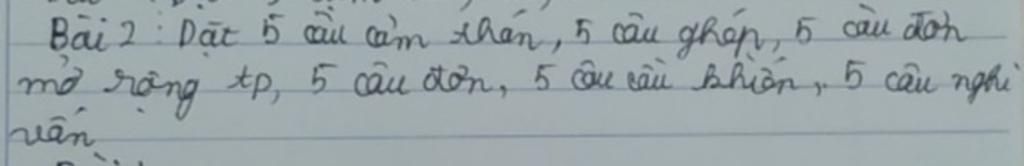 Bài 2: Dặt 5 câu cảm thán, 5 câu ghép, 5 câu đơn
mở rộng tp, 5 câu đơn, 5 câu cầu khiến, 5 câu nghi
vấn